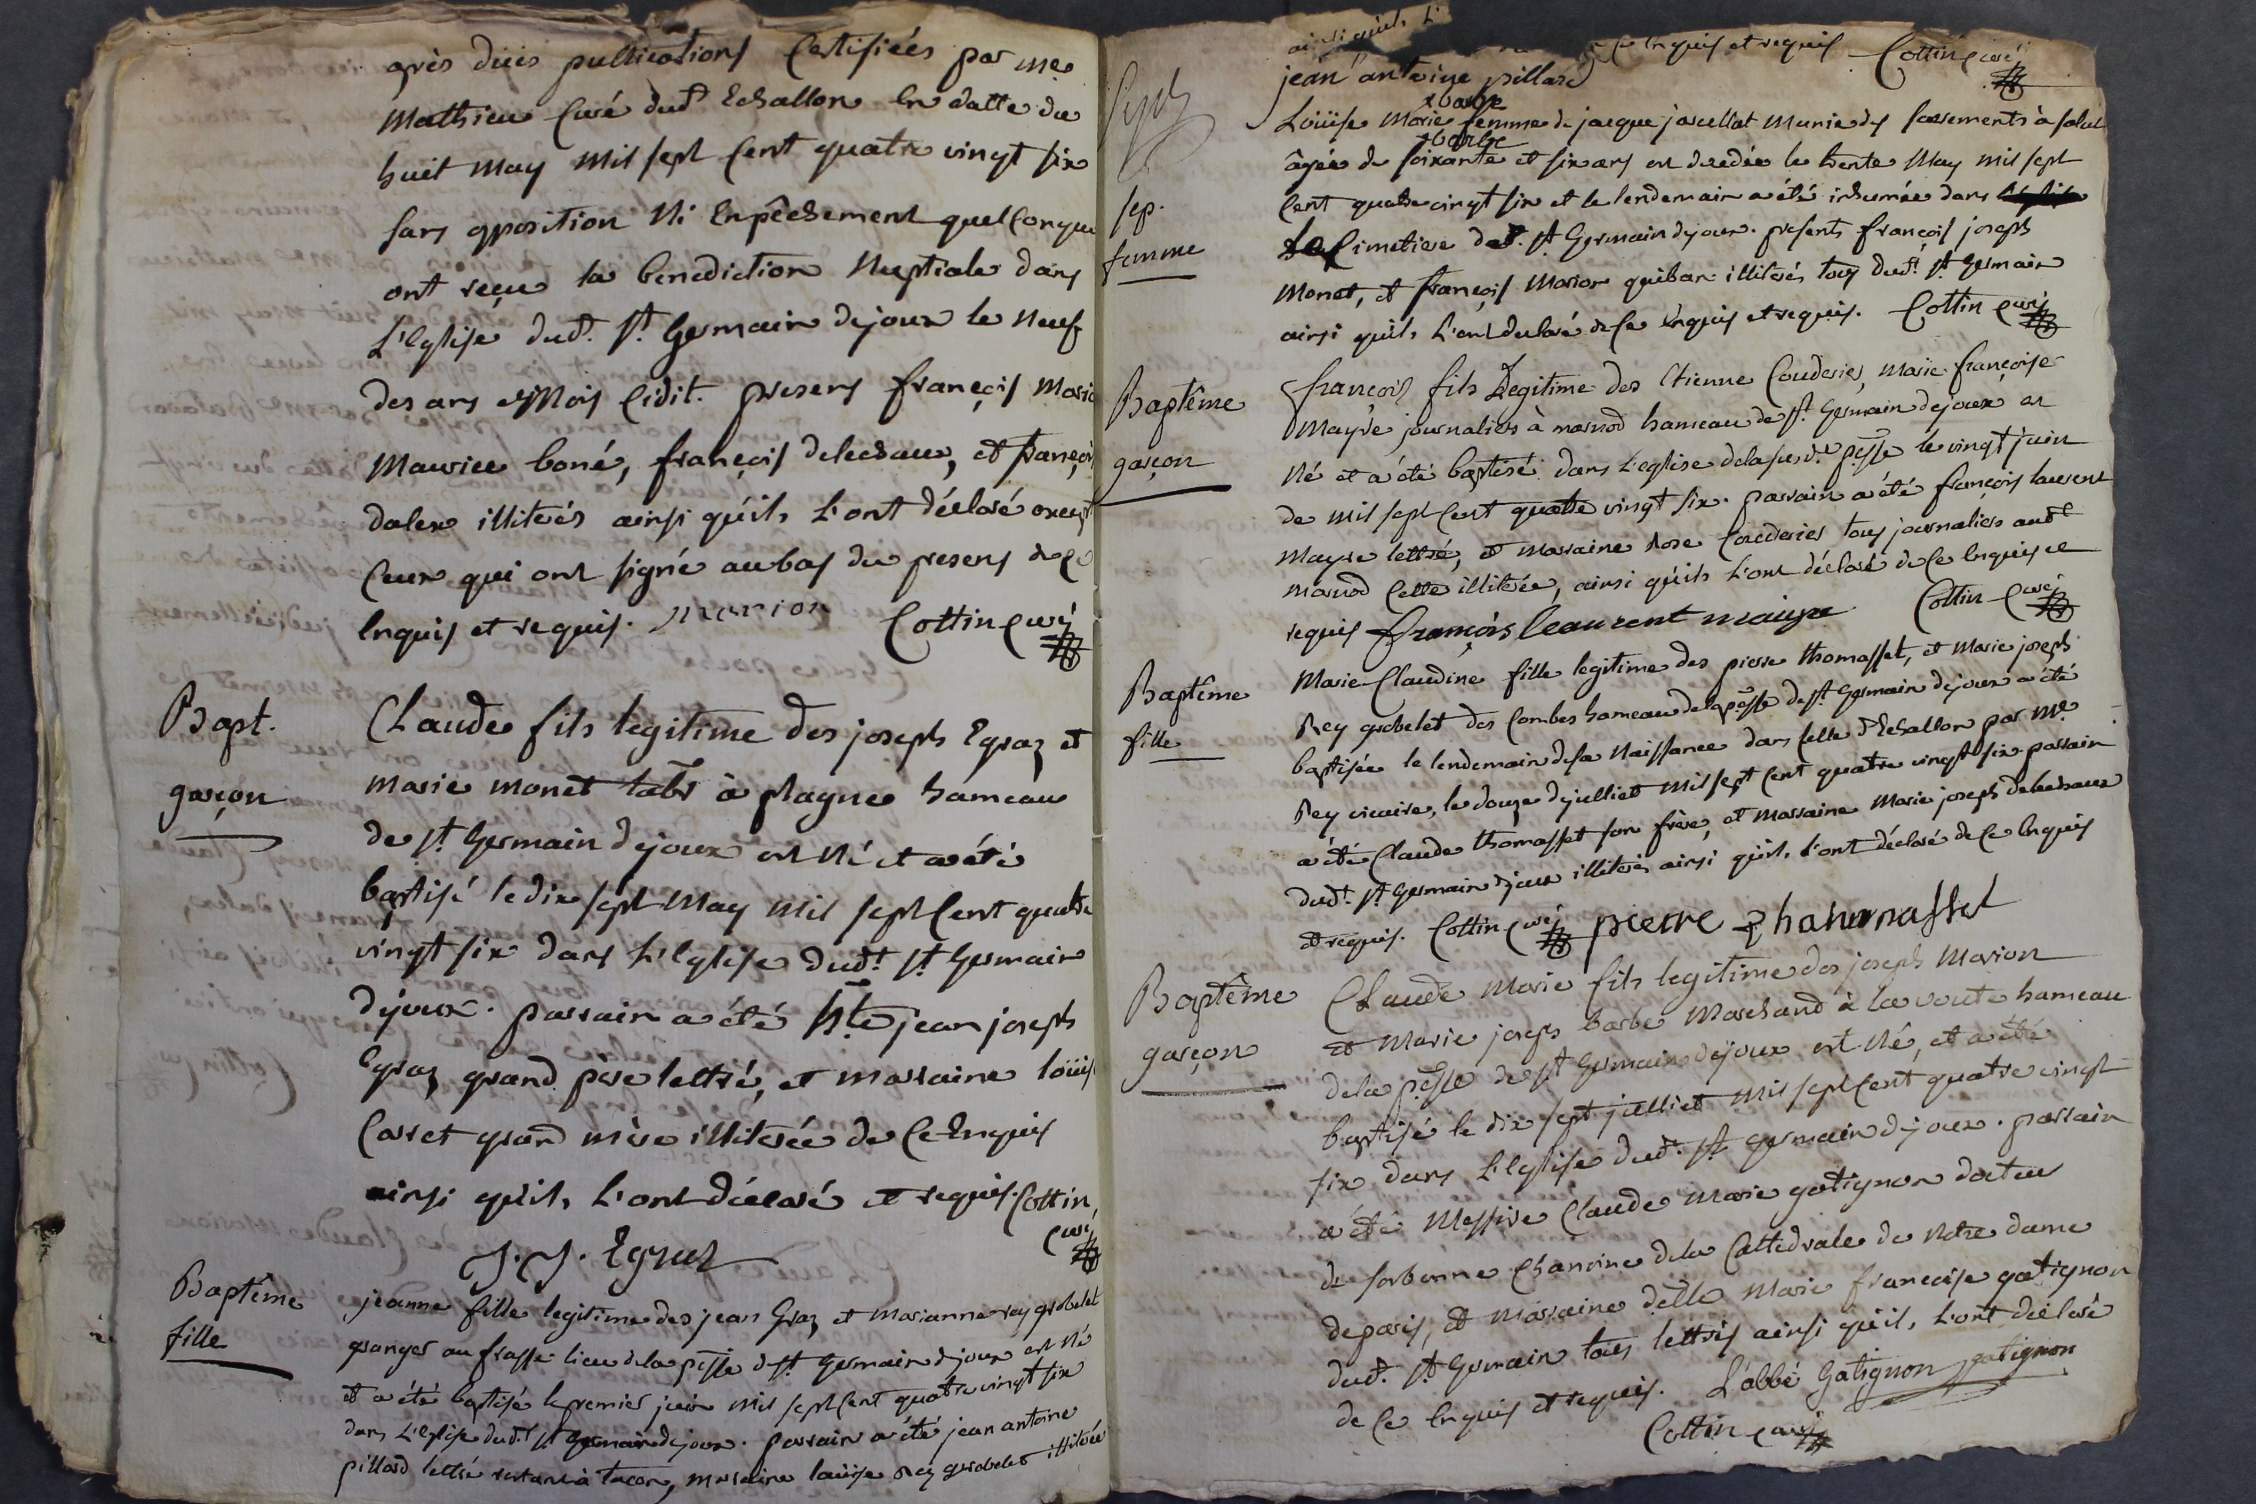 après deux publications Certifiées par me
Mathieu Curé dud.t Echallon En datte du
huit May mil sept Cent quatre vingt six
sans opposition Ni Enpêchement quelConque
ont reçu la benediction Nuptiale dans
L'Eglise dud.t S.t Germain dejoux le Neuf
des ans et Mois Cidit. presens françois Marie
Maurice boné, françois delechaux, et françois
dalex illiterés ainsi qu'ils L'ont déclaré except
Ceux qui ont signé au bas du presens de Ce
Enquis et requis. marion Cottin Curé
Bapt.
garçon
Claude fils legitime des joseph Egraz et
marie monet lab.r à plagne hameau
de S.t Germain dejoux est Né et a été
baptisé le dix sept May mil sept Cent quatre
vingt six dans L'Eglise dud.t S.t Germain
dejoux. parrain a été jean joseph
Egraz grand pere lettré, et marraine loüise
Carret grand mère illiterée de Ce Enquis
ainsi qu'ils L'ont déclaré et requis. Cottin
Curé
J. J. Egraz
Baptême
fille
jeanne fille legitime des jean Graz et marianne rey grobelet
granger au frasse lieu dela p.sse de S.t Germain dejoux est Né
et a été baptisée le premier juin mil sept Cent quatre vingt six
dans L'Eglise dud.t S.t Germain dejoux. parrain a été jean antoine
pillard lettré restant à tacon, marraine loüise Rey grobelet illiterée
ainsi qu'ils L'
Enquis et requis Cottin Curé
jean antoine pillard
Sep.
femme
barbe
Loüise Marie femme de jacque javellot Munie des sacrements à salut
barbe
âgée de soixante et six ans est décédée le trente May mil sept
Cent quatre vingt six et le lendemain a été inhumée dans
Le Cimetiere de S.t Germain dejoux. presents françois joseph
Monet, et françois Marion quiban illiterés tous dud.t S.t Germain
ainsi qu'ils L'ont déclaré de Ce Enquis et requis. Cottin Curé
Baptême
garçon
françois fils Legitime des Etienne Couderier, Marie françoise
Mayre journaliers à marnod hameau de S.t Germain dejoux est
Né et a été baptisé dans L'eglise dela susd.e p.sse le vingt juin
de mil sept Cent quatre vingt six. parrain a été françois laurent
Mayre lettré, et marraine Rose Couderier tous journaliers aud.t
marnod Cette illiterée, ainsi qu'ils L'ont déclaré de Ce Enquis et
requis françois leaurent maiyre Cottin Curé
Baptême
fille
Marie Claudine fille legitime des pierre thomasset, et Marie joseph
Rey grobelet des Combes hameau dela p.sse de S.t Germain dejoux a été
baptisée le lendemain de sa Naissance dans Celle d'Echallon par M.e
Rey vicaire, le douze de julliet mil sept Cent quatre vingt six parrain
a été Claude thomasset son frère, et marraine Marie joseph delechaux
dud.t S.t Germain dejoux illiterés ainsi qu'ils L'ont déclaré de Ce Enquis
et requis. Cottin Curé pierre thahomasset
Baptême
garçon
Claude Marie fils legitime des joseph Marion
et Marie joseph barbe Marchand à la voute hameau
dela p.sse de S.t Germain dejoux est Né, et a été
baptisé le dix sept julliet mil sept Cent quatre vingt
six dans L'Eglise dud.t S.t Germain dejoux. parrain
a été Messire Claude Marie gatignon docteu
de sorbonne Chanoine dela Cathedrale de Notre dame
de paris, et marraine d.elle Marie françoise gatignon
dud.t S.t Germain tous lettrés ainsi qu'ils L'ont déclaré
de Ce Enquis et requis. L'abbé Gatignon gatignon
Cottin Curé